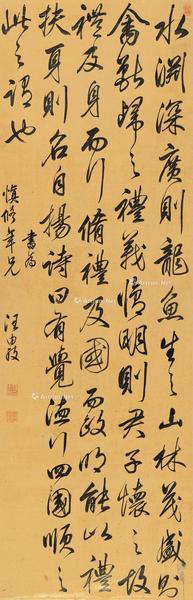 水淵深廣則龍魚生之山林茂盛則
禽獸歸之禮義脩明則君子懷之故
禮及身而行脩禮及國而政明能以禮
扶身則名自揚詩曰有覺德行四國順之
此之謂也
書為
慎修年兄
汪由敦